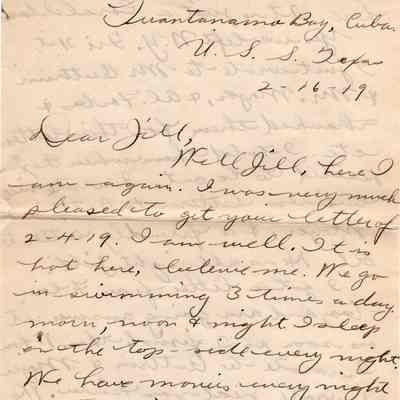 Guantanamo Bay, Cuba.
U. S. S. Texas
2-16-19
Dear Jill,
Well Jill, here I
am again. I was very much
pleased to get your letter of
2-4-19. I am well. It is
hot here, beleive me. We go
in swimming 3 times a day
morn, noon & night I sleep
on the top-side every night.
We have movies every night